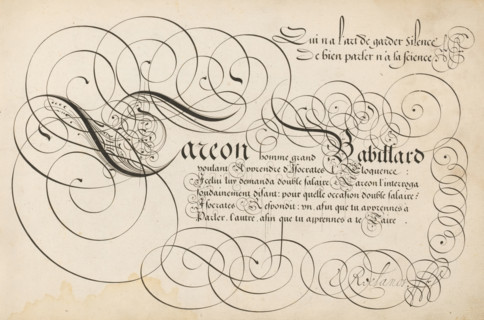 Qui n'a l'art de garder silence
De bien parler n'a la science.
Careon homme grand Babillard
voulant Apprendre d'Isocrates l'Eloquence :
Icelui luy demanda double salaire. Careon l'interroga
soudainement disant : pour quelle occasion double salaire ?
Isocrates Respondit : un, afin que tu apprennes a
Parler. l'autre, afin que tu apprennes a te Taire.